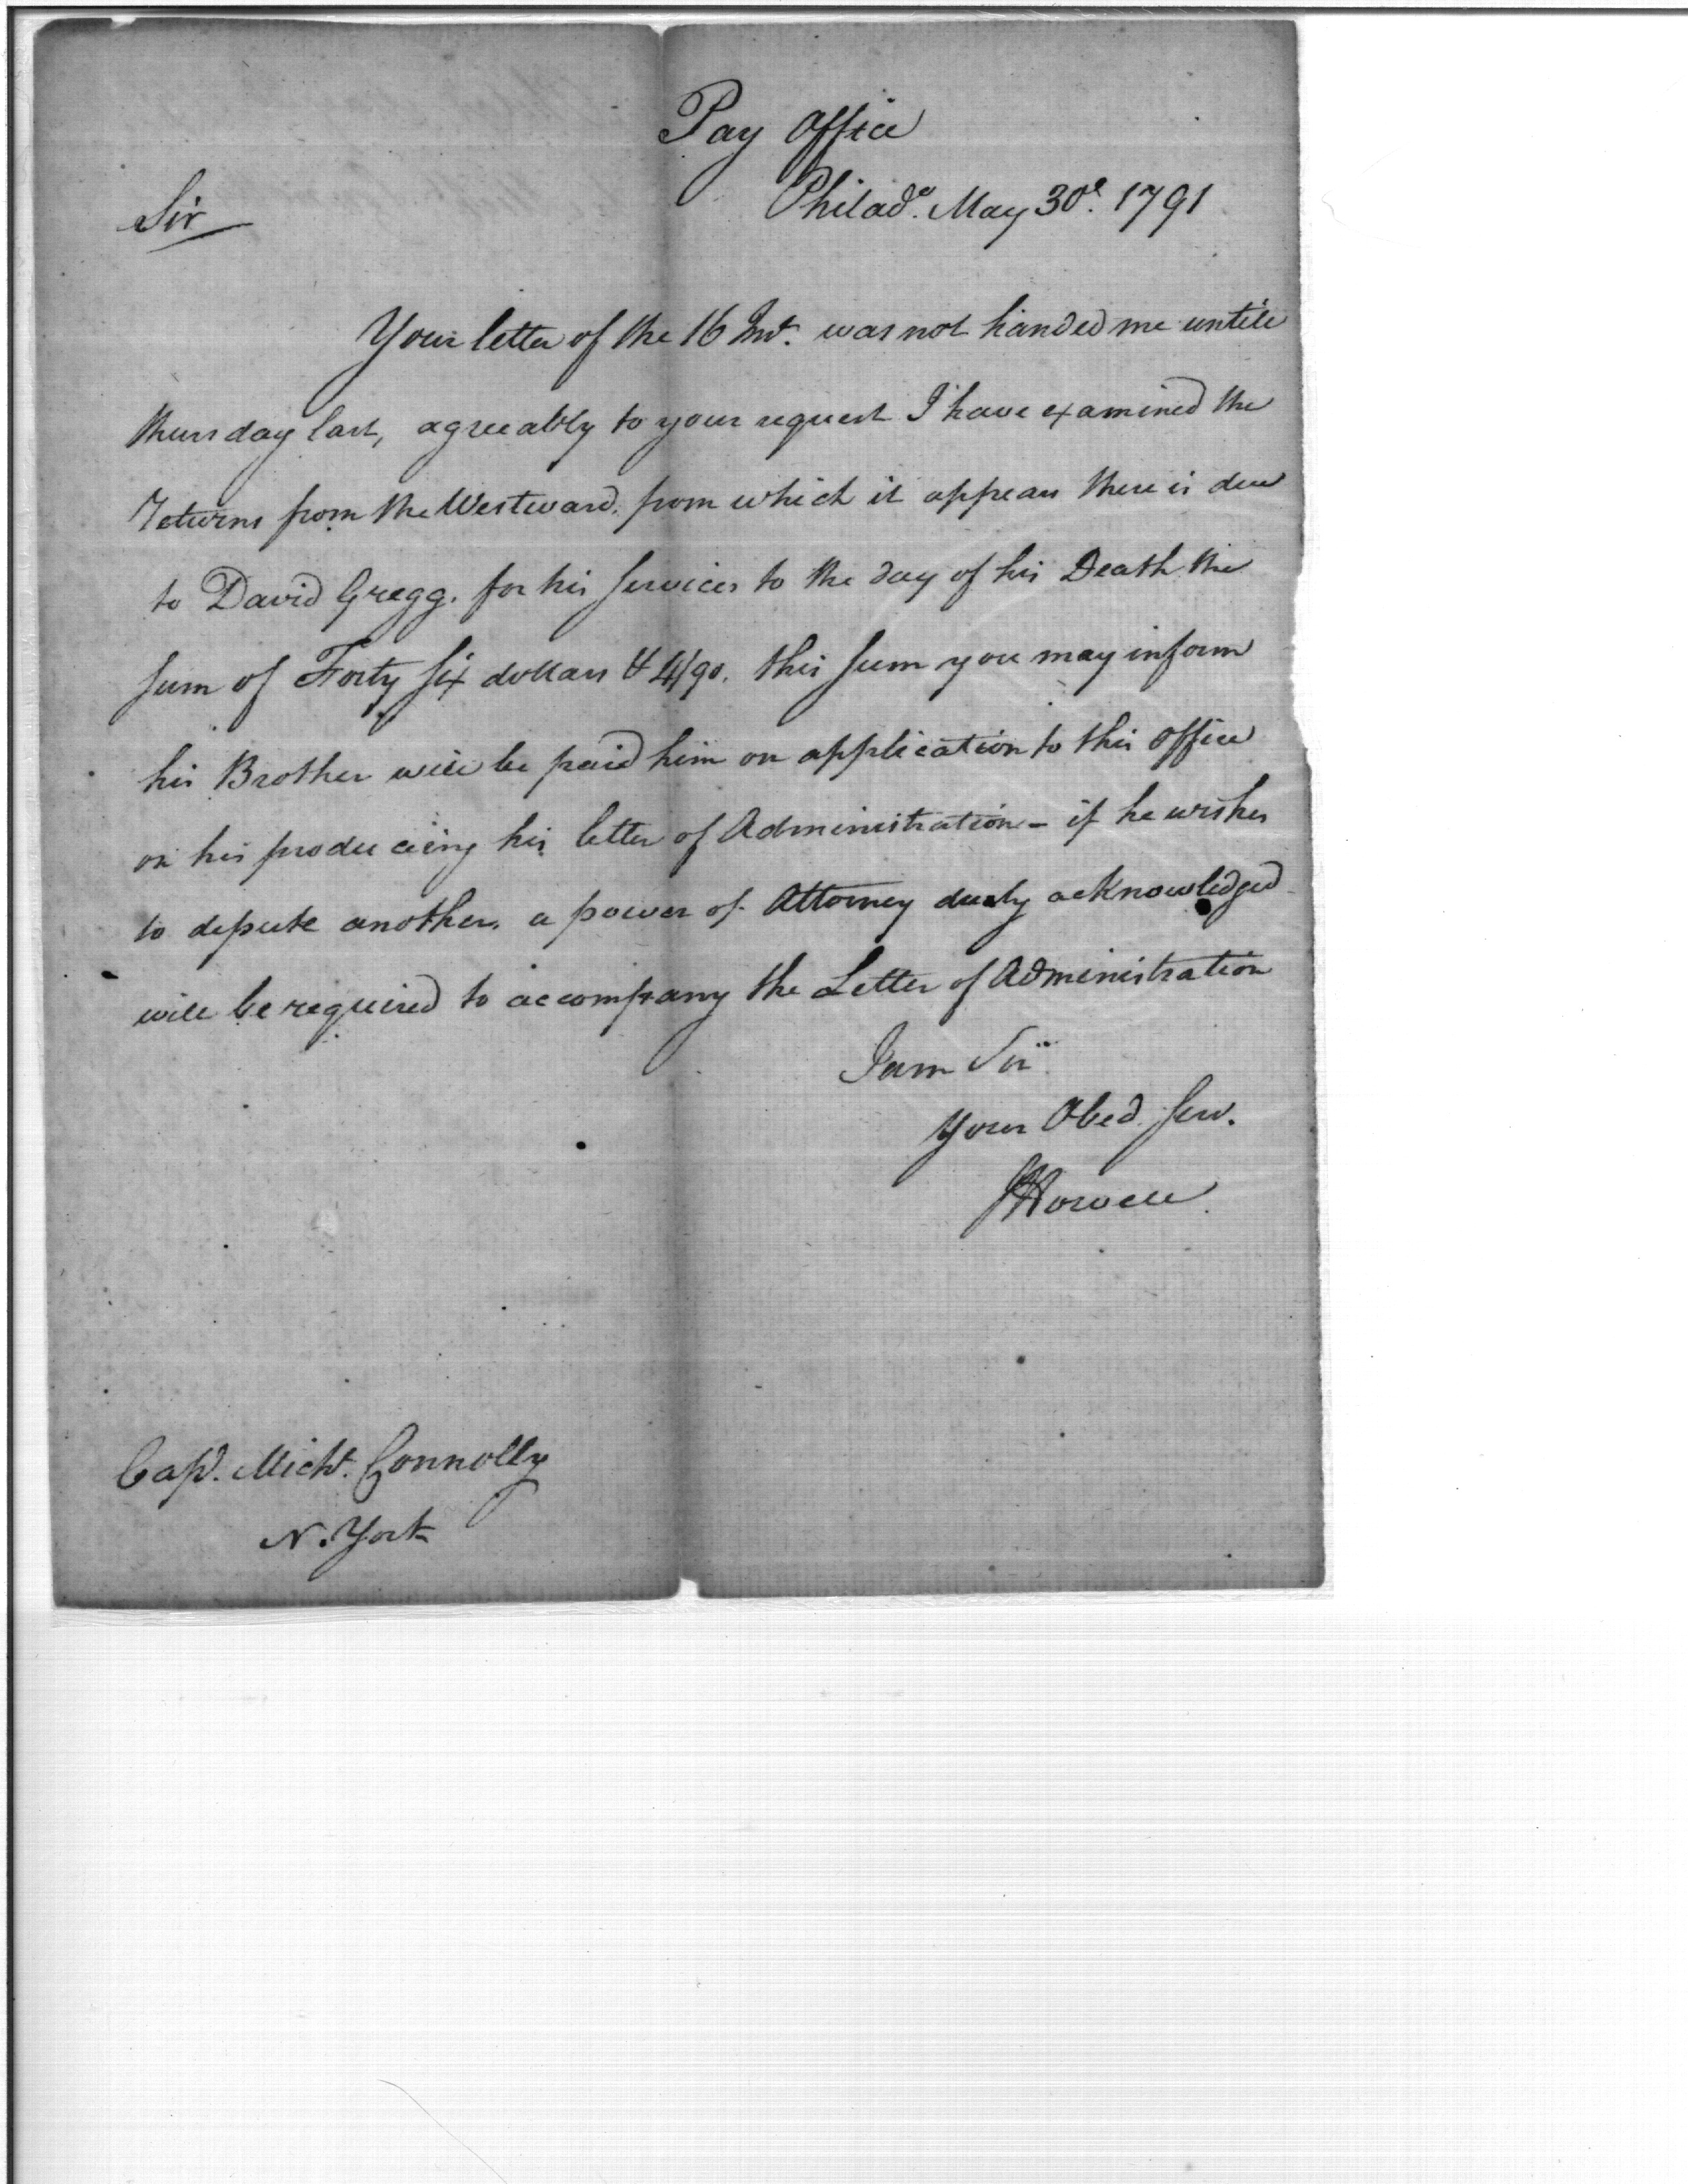 Pay Office
Philada. May 30th. 1791
Sir
Your letter of the 16 Inst. was not handed me untill
thursday last, agreeably to your request I have examined the
returns from the Westward. from which it appears there is due
to David Gregg. for his services to the day of his Death the
sum of Forty six dollars & 4/90. this sum you may inform
his Brother will be paid him on application to this office
on his produceing his letter of Administration - if he wishes
to depute another, a power of Attorney duely acknowledged
will be required to accompany the Letter of Administration
I am Sir
Your Obed. Serv.
JHowell
Capt. Michl. Connolly
N. York